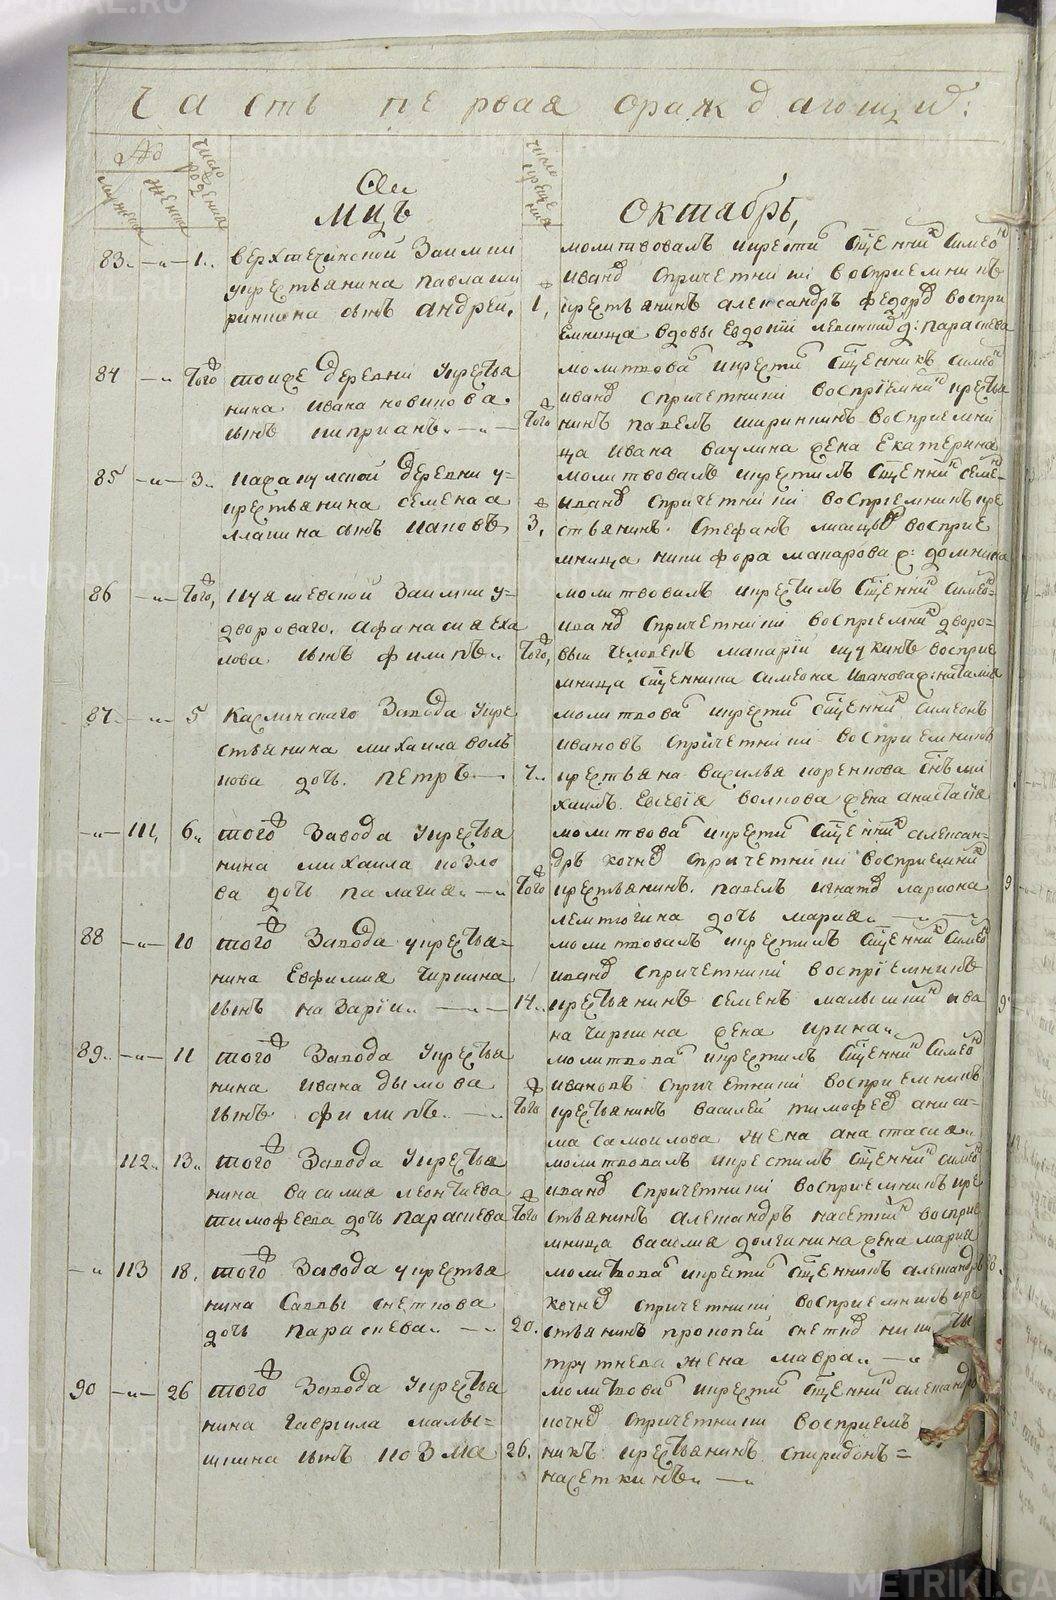 Часть первая ораждающи:
Мужеска
Женска
число рожения
число крещения
Мцъ
Октабрь,
83. -"- 1. Верхтечинской Заимки
у крестьянина Павла ши
ринкина сынъ Андрей. 1,
молитвовалъ и крести сщенник Симео
Иванов спричетники восприемникъ
крестьянинъ Александръ Федоров воспри
емница вдовы Евдокии д: Параскева
84 -" того тоиже деревни у крестья
нина Ивана новикова
сынъ киприанъ. -"- того
молитвова и крести сщенникъ Симео
Иванов спричетники восприемник крестья
нинъ Павелъ ширинкинъ восприемни
ца Ивана ваулина жена Екатерина
85 -"- 3. деревни у
крестьянина Семена а
лапина сынъ Иаковъ 3,
молитвовалъ и крестилъ сщенник Симео
Иванов спричетники восприемникъ кре
стьянинъ. Стефанъ восприе
мница никифора макарова ж: домника
86 -"- того, заимки у
двороваго. Афанасиа
лова сынъ филипъ. того,
молитвовалъ и крестилъ сщенник Симео
Иванов спричетники восприемник дворо
вый человекъ макарий щукинъ восприе
мница сщенника Симеона Иванова ж: наталиа
87. -"- 5 Каслинскаго Завода у кре
стьянина михаила волъ
кова дочь. Петръ 7.
молитвова и крести сщенник Симеонъ
Ивановъ спричетники восприемникъ
крестьяна василья коренкова снъ ми
хаилъ. Евсевиа волкова жена анастасиа
-"- 111, 6. того Завода у крестья
нина михаила козло
ва дочь палагиа. -" того
молитвова и крести сщенник алексан
дръ кочнев спричетники восприемник
крестьянинъ. павелъ игнатов лариона
лемтюгина дочь мариа.
88 -"- 10 того Завода у крестья=
нина Евфимиа чиркина
сынъ назарии. 14.
молитвовалъ и крестилъ сщенник Симео
Иванов спричетники восприемникъ
крестьянинъ семенъ малышкин ива
на чиркина жена ирина.
89. -"- 11 того Завода у крестья
нина ивана дымова
сынъ филипъ. -" того
молитвова и крестилъ сщенник Симео
Ивановъ спричетники восприемникъ
крестьянинъ василей тимофеев аниси=
ма самоилова жена анастасиа.
112. 13. того Завода у крестья
нина василиа леонтиева
тимофеева дочь параскева того
молитвовалъ и крестилъ сщенник симео
Иванов спричетники восприемникъ кре
стьянинъ алеѯандръ насеткин восприе
мница василиа долганина жена мариа
-" 113 18. того Завода у крестья
нина Саввы снеткова
дочь параскева. -" 20.
молитвова и крести сщенникъ алеѯандръ
кочнев спричетники восприемникъ кре
стьянинъ прокопей снетков ники ты
трутнева жена мавра. -"
90 -"- 26 того Завода у крестья
нина гавриила малы=
шкина сынъ козма 26.
молитвова и крести сщенник алеѯандръ
кочнев спричетники восприем
никъ крестьянинъ спиридонъ=
насеткинъ.